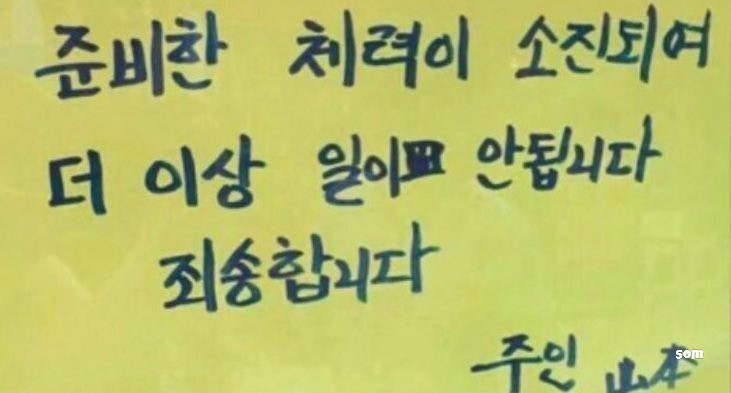 준비한 체력이 소진되여
더 이상 일이 안됩니다
죄송합니다
주인 山本
som